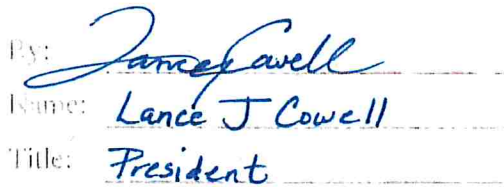 By: Lance J Cowell
Name: Lance J Cowell
Title: President